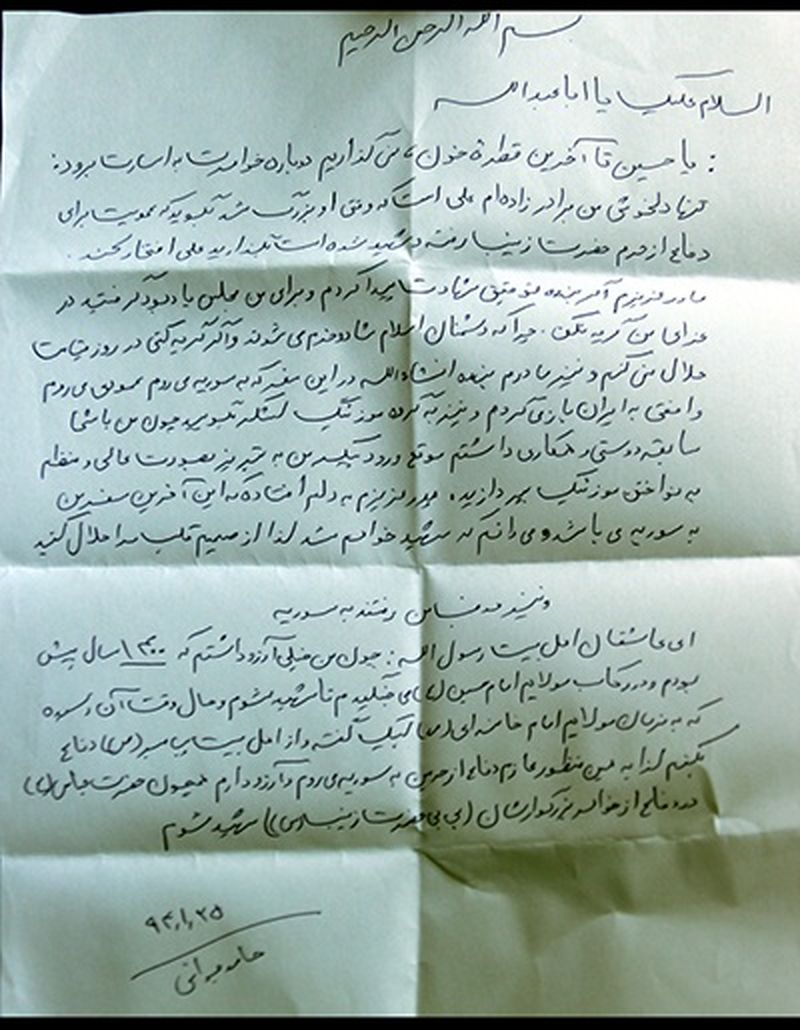 بسم الله الرحمن الرحیم
السلام علیک یا اباعبدالله
: یا حسین تا آخرین قطره خون نمی گذاریم دوباره خواهرت به اسارت برود :
تنها دلخوشی من برادر زاده ام علی است که وقتی او بزرگ شد بگویید که عمویت برای
دفاع از حرم حضرت زینب رفته و شهید شده است بگذارید علی افتخار کند .
مادر عزیزم اگر بنده توفیق شهادت پیدا کردم و برای من مجلس یادبود گرفتید در
عزای من گریه نکن . چرا که دشمنان اسلام شاد و خرم می شوند و اگر گریه کنی در روز قیامت
حلال نمی کنم و نیز مادرم بنده انشاءالله در این سفر که به سوریه می روم می روم
وقتی به ایران باز می گردم و نیز به گروه موزیک لشکر بگویید چون من با شما
سابقه دوستی و همکاری داشتم موقع ورود پیکر من به تبریز بصورت عالی و منظم
به نواختن موزیک بپردازید . پدر عزیزم به دلم افتاده که این آخرین سفر من
به سوریه می باشد و می دانم که شهید خواهم شد لذا از صمیم قلب مرا حلال کنید
و نیز رفتند به سوریه
ای عاشقان اهل بیت رسول الله : چون من خیلی آرزو داشتم که ۱۴۰۰ سال پیش
بودم و در رکاب مولایم امام حسین (ع) می جنگیدم تا شهید شوم و حال وقت آن رسیده
که به فرمان مولایم امام خامنه ای لبیک گفته و از اهل بیت پیامبر (ص) دفاع
بکنم لذا به همین منظور عازم دفاع از حرمین به سوریه می روم و آرزو دارم همچون حضرت عباس (ع)
در دفاع از خواهر بزرگوارشان (بی بی حضرت زینب (س)) شهید شوم
۹۴,۱,۲۵
حامد جوانی